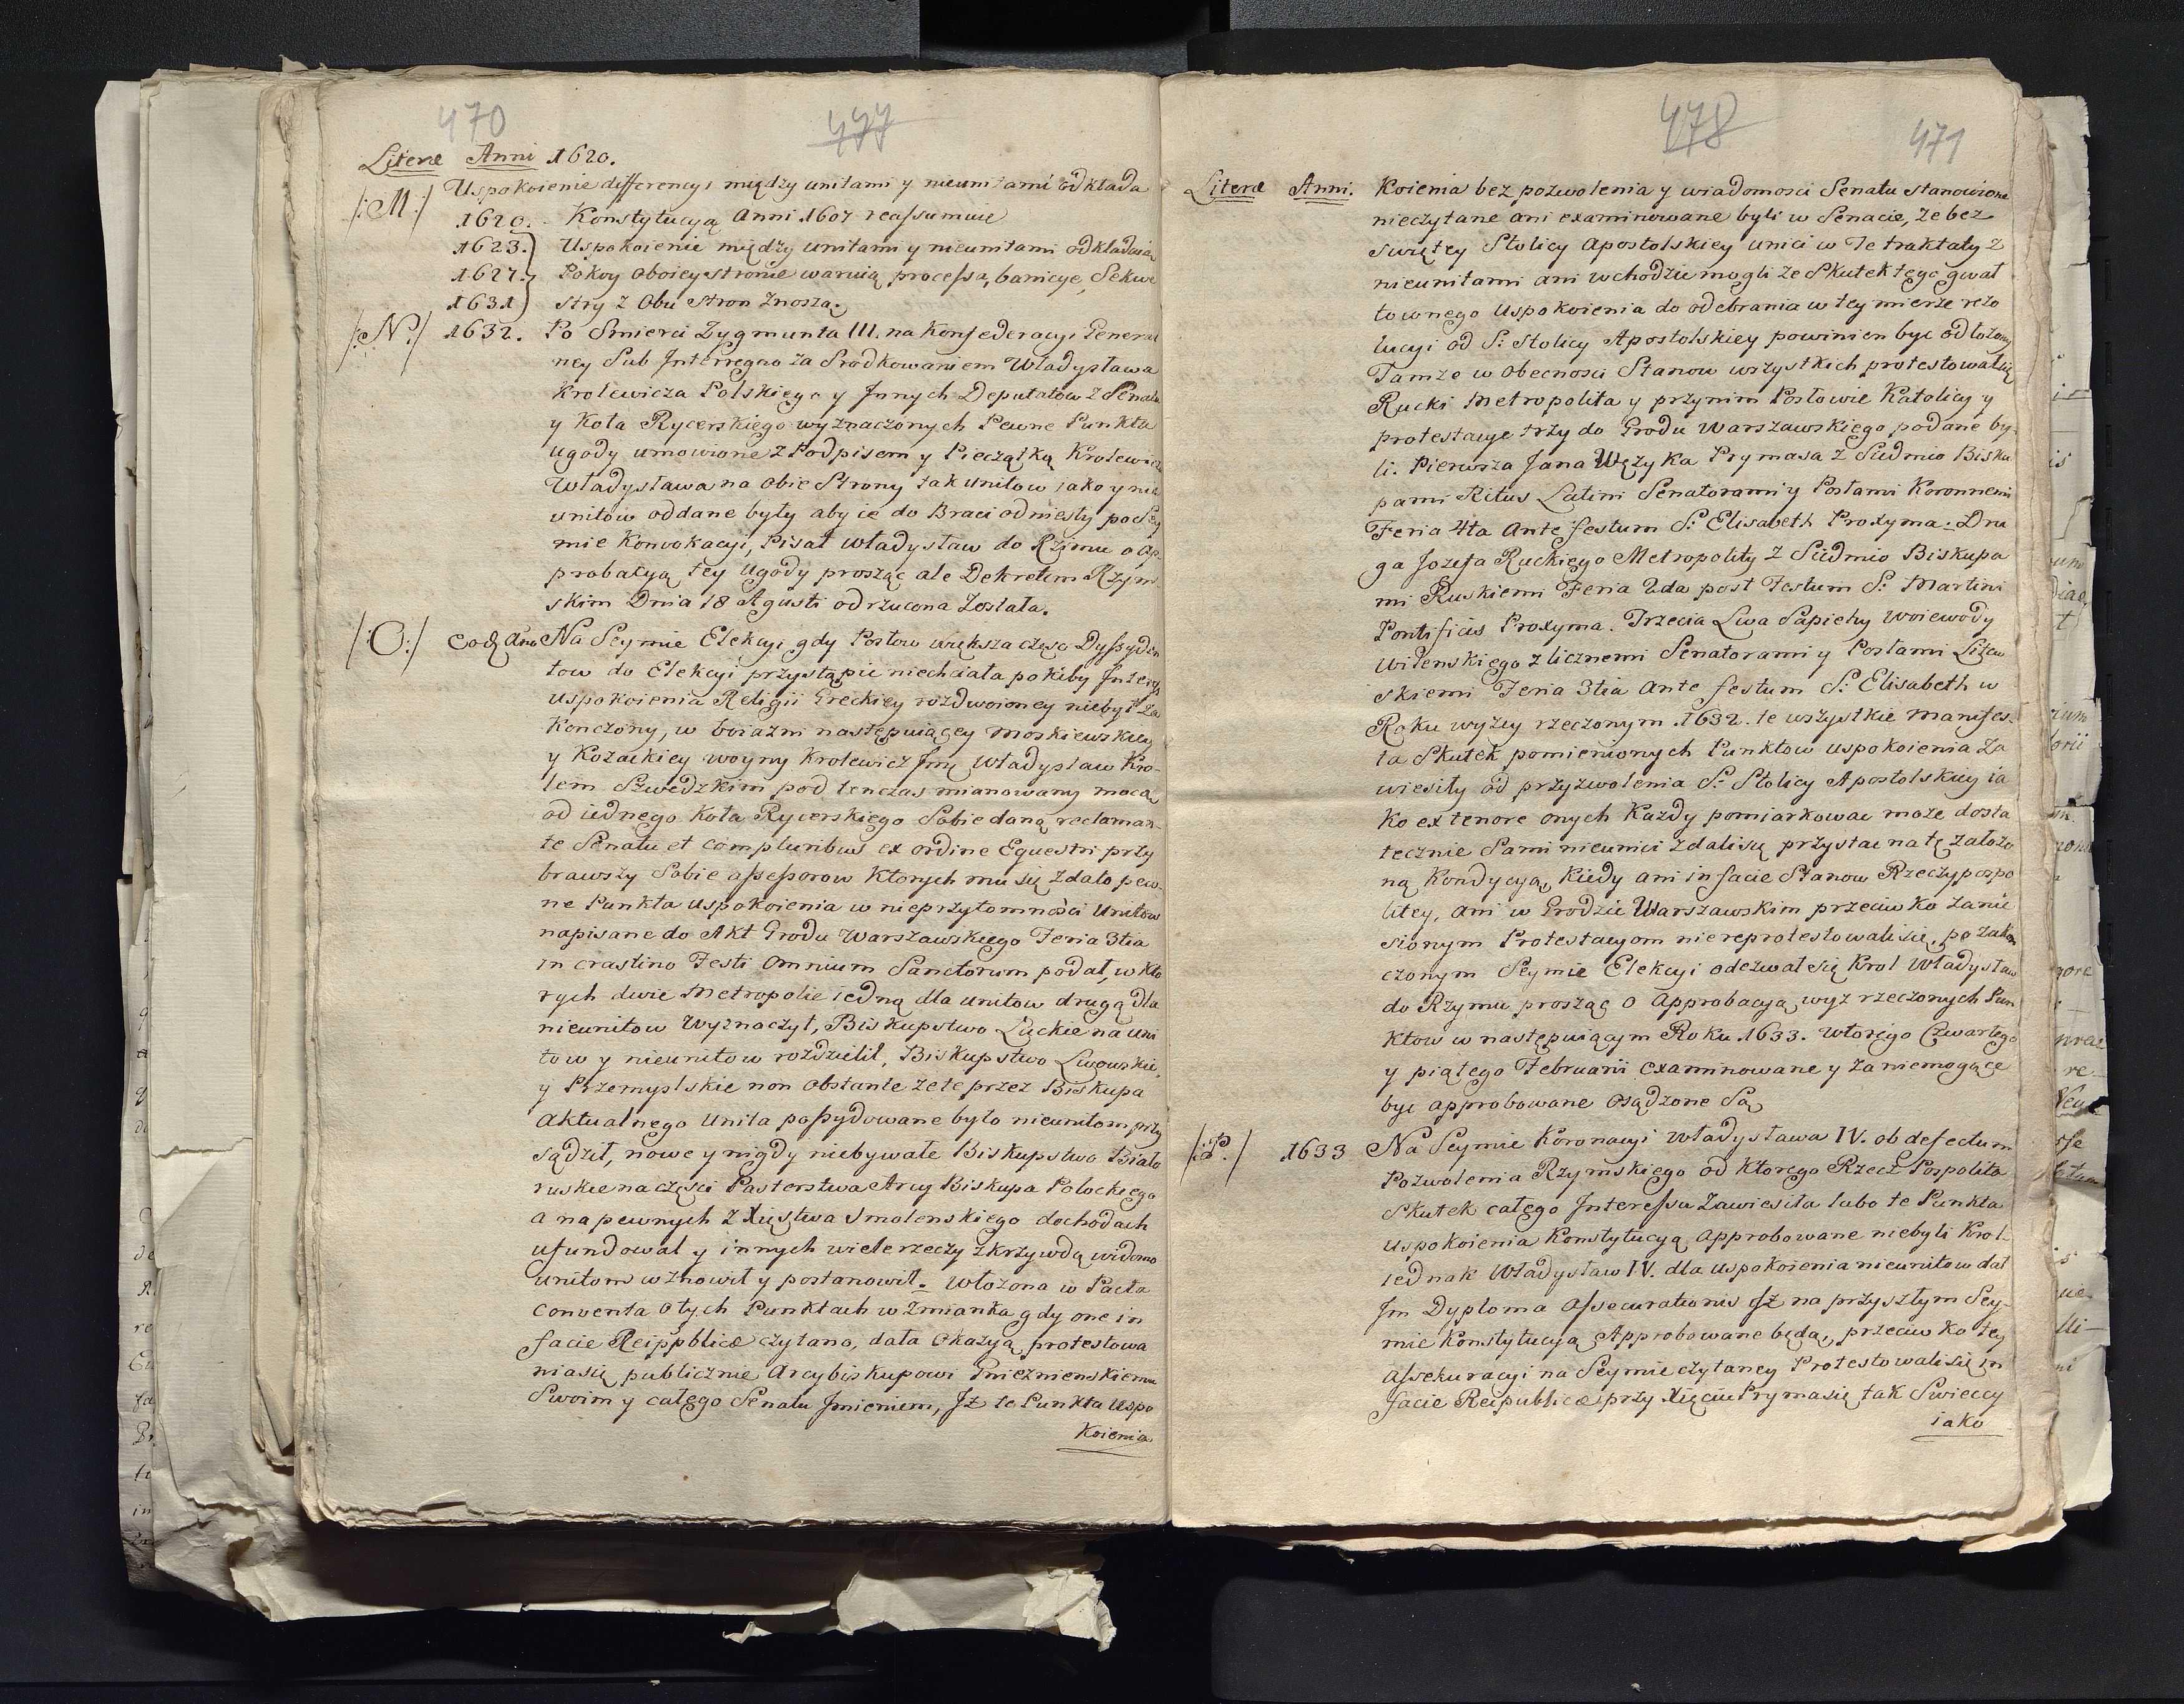 470 477
Literæ Anni 1620.
/:M:/ Uspokoienie differencyi między unitami y nieunitami odkłada
1620. Konstytucyą Anni 1607 reassumuie
1623. Uspokoienie między unitami y nieunitami odkładaiąc
1627. Pokoy oboiey stronie waruią processa, banicye, Sekwe
1631 stry z Obu stron Znoszą.
/:N:/ 1632. Po Smierci Zygmunta III. na Konfederacyi General
ney Sub Interregno za Srodkowaniem Władysława
Krolewicza Polskiego y Innych Deputatow z Senatu
y Koła Rycerskiego wyznaczonych Pewne Punkta
ugody umowione z Podpisem y Pieczątką Krolewicza
Władysława na obie Strony tak unitow iako y nie
unitow oddane były aby ie do Braci odniesły po Sey
mie Konwokacyi, Pisał Władysław do Rzymu o ap-
probacyą tey Ugody prosząc ale Dekretem Rzym-
skim Dnia 18 Agusti odrzucona Została.
/:O:/ Eod Ano Na Seymie Elekcyi gdy Posłow większa częsc Dyssyden
tow do Elekcyi przystąpic niechciała pokiby Interess
uspokoienia Religii Greckiey rozdwoioney niebył za
konczony, w boiazni następuiącey Moskiewskiey
y Kozackiey woyny Krolewicz Imę Władysław Kro-
lem Szwedzkim pod tenczas mianowany mocą
od iednego Koła Rycerskiego Sobie daną reclaman-
te Senatu et compluribus ex ordine Equestri przy
brawszy Sobie assessorow Ktorych mu się zdało pew-
ne Punkta uspokoienia w nieprzytomności Unitow
napisane do Akt Grodu Warszawskiego Feria 3tia
in crastino Festi Omnium Sanctorum podał, w kto
rych dwie Metropolie iedną dla unitow drugą dla
nieunitow Wyznaczył, Biskupstwo Łuckie na uni
tow y nieunitow rozdzielił, Biskupstwo Lwowskie,
y Przemyslskie non obstante że te przez Biskupa
aktualnego Unita possydowane było nieunitom przy
sądził, nowe y nigdy niebywałe Biskupstwo Biało
ruskie na częsci Pasterstwa Arcy Biskupa Polockiego
a na pewnych z Xięstwa Smolenskiego dochodach
ufundował y innych wiele rzeczy z krzywdą widomo
unitom wznowił y postanowił. Włożona w Pacta
Conventa o tych Punktach wzmianka gdy one in
facie Reippblicæ czytano, data Okazyą protestowa
nia się publicznie Arcybiskupowi Gnieznienskiemu
Swoim y całego Senatu Imieniem, Iż te Punkta uspo
koienia
478 471
Literæ Anni. koienia bez pozwolenia y wiadomosci Senatu stanowione
nieczytane ani examinowane byli w Senacie, że bez
swiętey Stolicy Apostolskiey unici w Te traktaty z
nieunitami ani wchodzic mogli że Skutek tego gwał
townego uspokoienia do odebrania w tey mierze rezo
lucyi od S: Stolicy Apostolskiey powinien byc odłożony
Tamże w obecnosci Stanow wszystkich protestowali się
Rucki Metropolita y przynim Posłowie Katolicy y
protestacye trzy do Grodu Warszawskiego podane by-
li. Pierwsza Jana Wężyka Prymasa z Siedmio Bisku
pami Ritus Latini Senatorami y Posłami Koronnemi
Feria 4ta Ante festum S: Elisabeth Proxyma. Dru
ga Jozefa Ruckiego Metropolity z Siedmio Biskupa
mi Ruskiemi Feria 2da post Festum S: Martini
Pontificis Proxyma. Trzecia Lwa Sapiehy woiewody
wilenskiego z licznemi Senatorami y Posłami Litew
skiemi Feria 3tia Ante festum S: Elisabeth w
Roku wyżey rzeczonym 1632. te wszystkie manifes-
ta Skutek pomienionych Punktow uspokoienia za
wiesiły od przyzwolenia S: Stolicy Apostolskiey ia
ko ex tenore onych Każdy pomiarkowac może dosta
tecznie Sami nieunici zdali się przystac na tę założo
ną Kondycyą, Kiedy ani in facie Stanow Rzeczypospo
litey, ani w Grodzie Warszawskim przeciwko zanie
sionym Protestacyom niereprotestowali się, po zakon
czonym Seymie Elekcyi odezwał się Krol Władysław
do Rzymu prosząc o Approbacyą wyz rzeczonych Pun
ktow w następuiącym Roku 1633. wtorego Czwartego
y piątego Februarii examinowane y za niemogące
byc approbowane osądzone Są
/:P:/ 1633 Na Seymie Koronacyi Władysława IV. ob defectum
Pozwolenia Rzymskiego od ktorego Rzecz Pospolita
Skutek całego Interessu Zawiesiła lubo te Punkta
uspokoienia Konstytucyą approbowane niebyli Krol
iednak Władysław IV. dla uspokoienia nieunitow dał
Im Dyploma Assecurationis Iż na przyszłym Sey-
mie Konstytucyą Approbowane będą, przeciwko tey
Assekuracyi na Seymie czytaney Protestowali się in
facie Reipublicæ przy Xięciu Prymasie tak Swieccy
iako